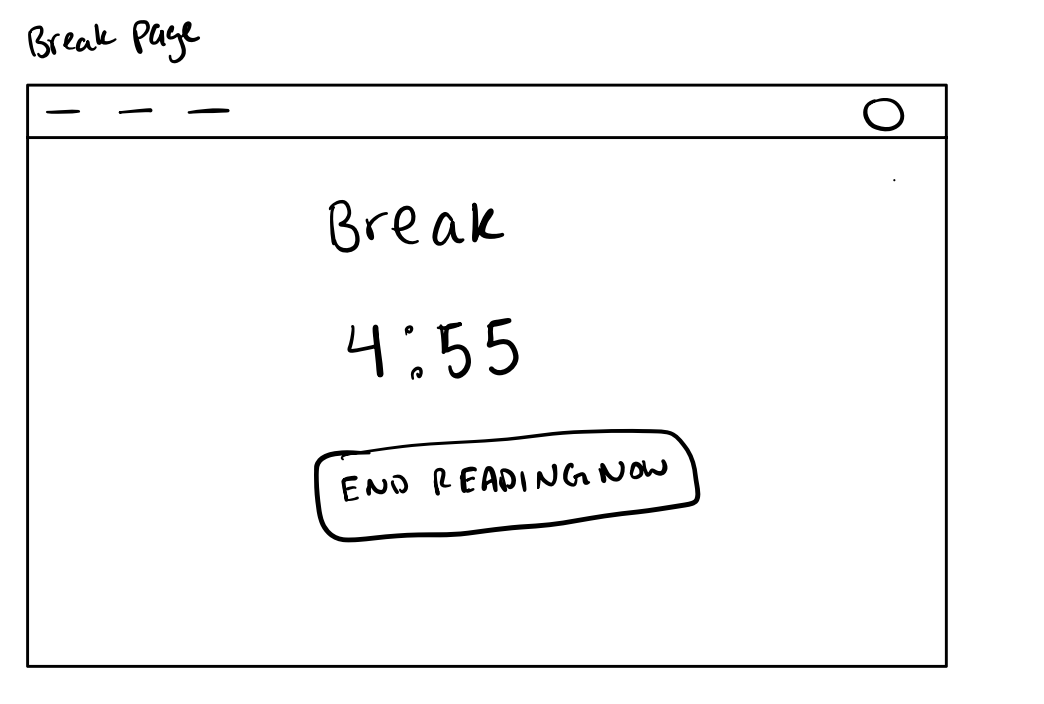 Break Page
Break
4:55
END READING NOW